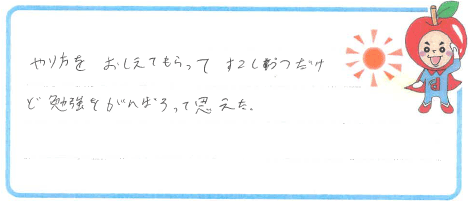 やり方を おしえてもらって すこしずつだけ
ど勉強をがんばろって思えた。